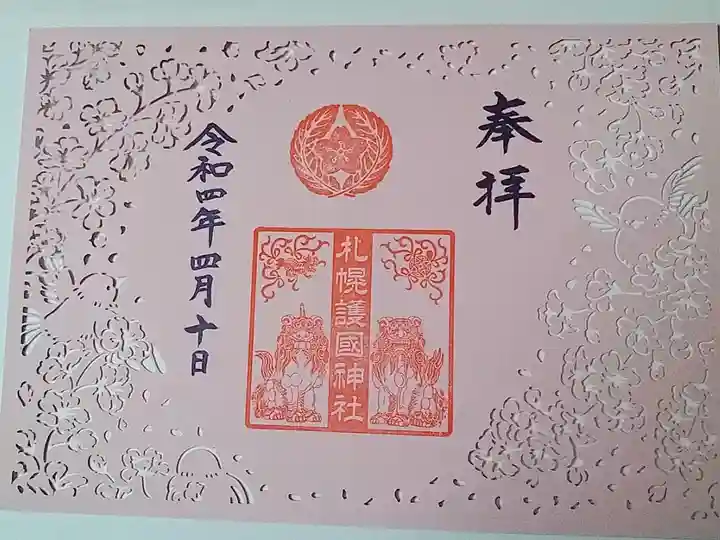 奉拝
札幌護國神社
令和四年四月十日